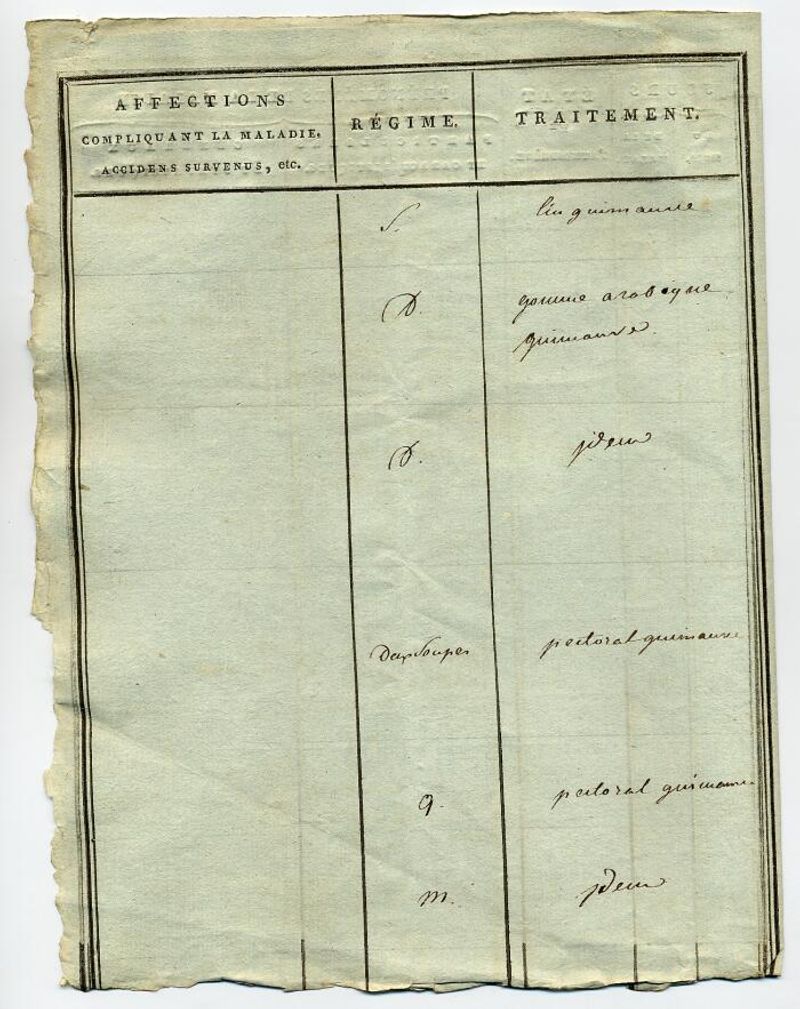 AFFECTIONS
COMPLIQUANT LA MALADIE.
ACCIDENS SURVENUS, etc.
RÉGIME.
TRAITEMENT.
S. lin guimauve
D. gomme arabique
guimauve
D. jdem
Deux Soupes pectoral guimauve
q. pectoral guimauve
m. jdem